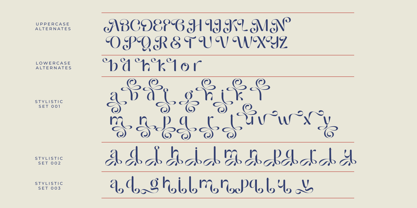 UPPERCASE
ALTERNATES
ABCDEFGHIJKLMN
OPQRSTUVWXYZ
LOWERCASE
ALTERNATES
b d h k k l o r
STYLISTIC
SET 001
a b d f g h j k l
m n p q r l u v w x y
STYLISTIC
SET 002
a d f h i d m n p q r d y
STYLISTIC
SET 003
a d g h i l m n p q t u y